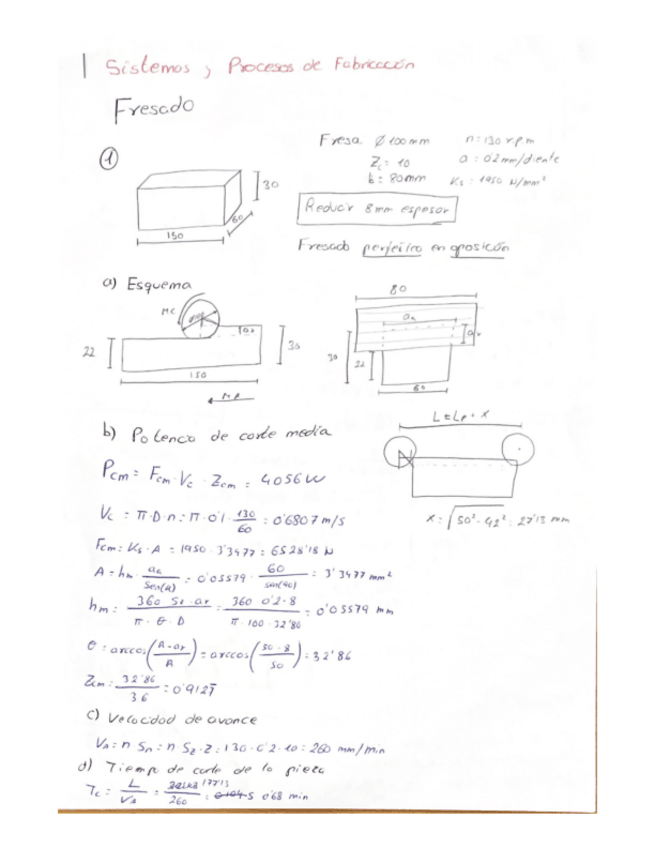 Sistemas y Procesos de Fabricación
Fresado
① Fresa Ø 100mm n = 130 r.p.m
Zc = 10 a : 0'2 mm/diente
b = 80mm Ks : 1950 N/mm²
30
60
150
Reducir 8mm espesor
Fresado periférico en oposición
a) Esquema
80
MC
22
30
150
MA
30
22
60
L = Lp + X
b) Potencia de corte media
Pcm = Fcm · Vc · Zcm = 4056W
X = √50² - 42² : 27'13 mm
Vc = π·D·n = π·0'1·130/60 = 0'6807 m/s
Fcm = Ks · A = 1950 · 3'3477 = 6528'18 N
A = hm · aa/sen(θ) = 0'05579 · 60/sen(90) = 3'3477 mm²
hm = 360 · Sz · ar/π · θ · D = 360 · 0'2 · 8/π · 100 · 32'86 = 0'05579 mm
θ = arccos(R-ar/R) = arccos(50-8/50) = 32'86
Zcm = 32'86/36 = 0'912
c) Velocidad de avance
Va = n · Sn = n · Sz · Z = 130 · 0'2 · 10 = 260 mm/min
d) Tiempo de corte de la pieza
Tc = L/Va = 177'13/260 = 0'68 min